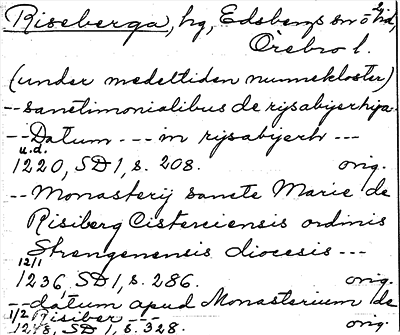 Riseberga, hg, Edsbergs sn o hd,
Örebro l.
(under medeltiden nunnekloster)
-- sanctimonialibus de rysabyerhga
-- Datum --- in rysabyerh ---
u.d.
1220, SD 1, s. 208. orig.
-- Monasterij sancte Marie de
Risiberg Cisterciensis ordinis
Strengenensis diocesis ---
12/1
1236, SD 1, s. 286. orig.
-- datum apud Monasterium de
1/2 Risiber ---
1248, SD 1, s. 328. orig.